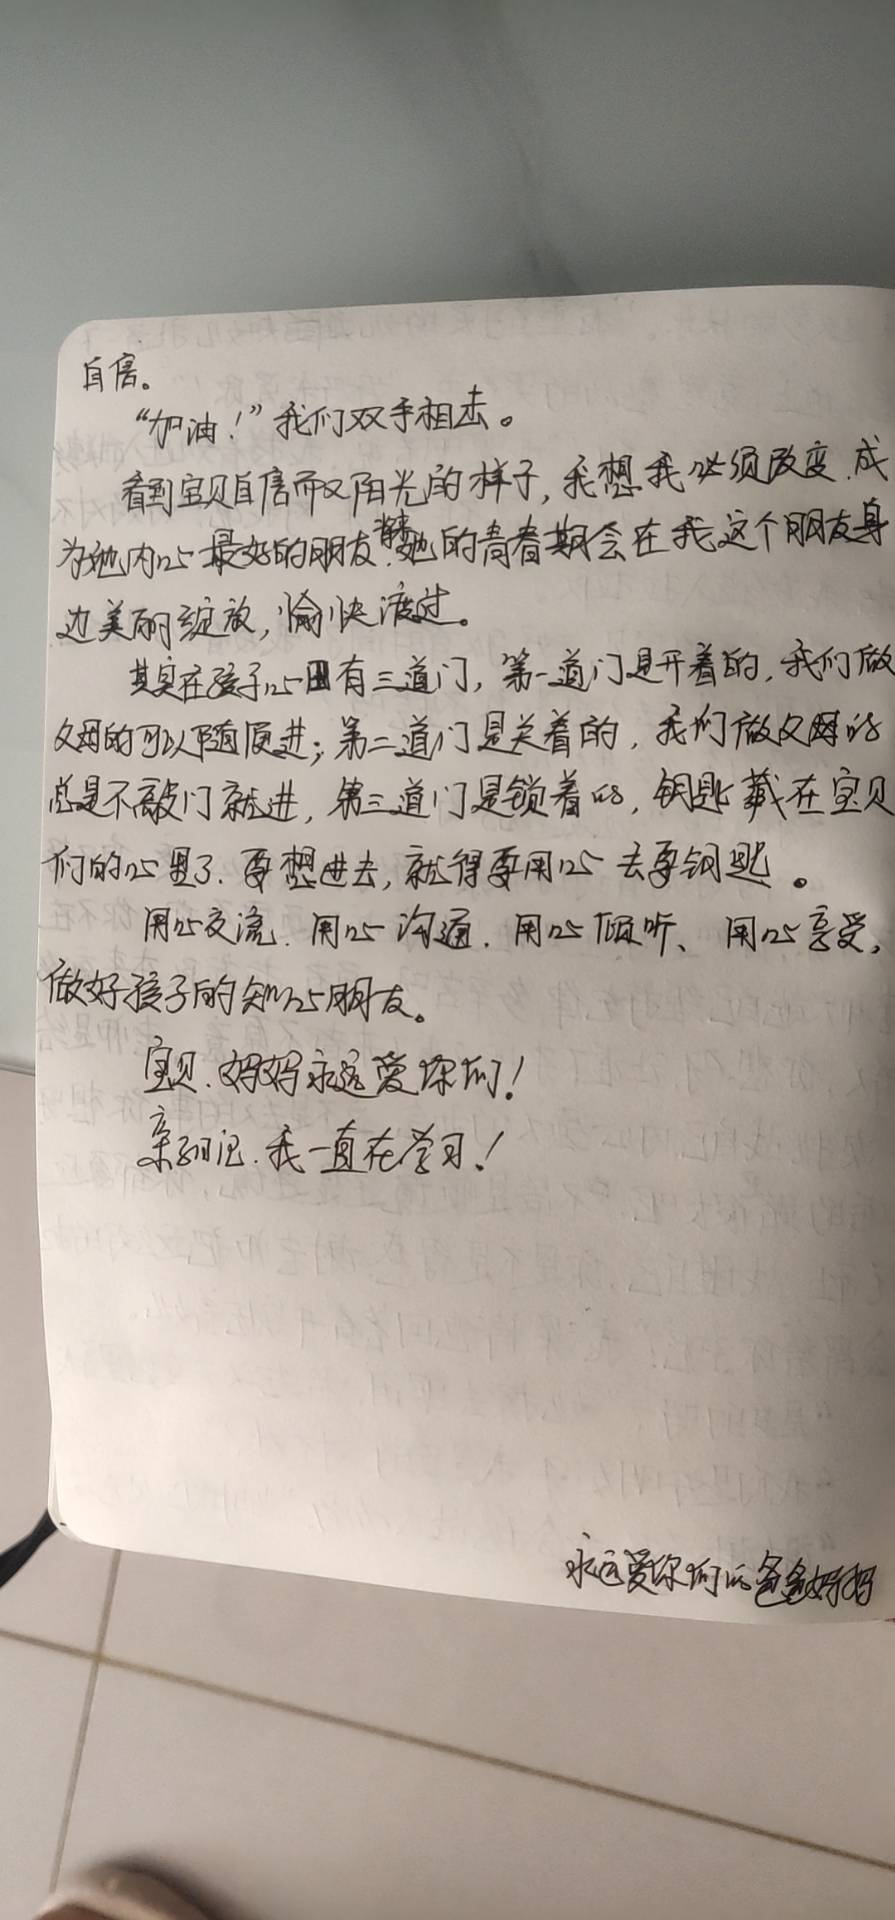 自信。
“加油！”我们双手相击。
看到宝贝自信而又阳光的样子，我想我必须改变.成
为她内心最好的朋友，她的青春期会在我这个朋友身
边美丽绽放，愉快渡过。
其实在孩子心里有三道门，第一道门是开着的，我们做
父母的可以随便进；第二道门是关着的，我们做父母的
总是不敲门就进，第三道门是锁着的，钥匙藏在宝贝
们的心里了.要想进去，就得要用心去拿钥匙。
用心交流.用心沟通.用心倾听、用心享受，
做好孩子的知心朋友。
宝贝.妈妈永远爱你们！
亲子日记.我一直在学习！
永远爱你们的爸爸妈妈